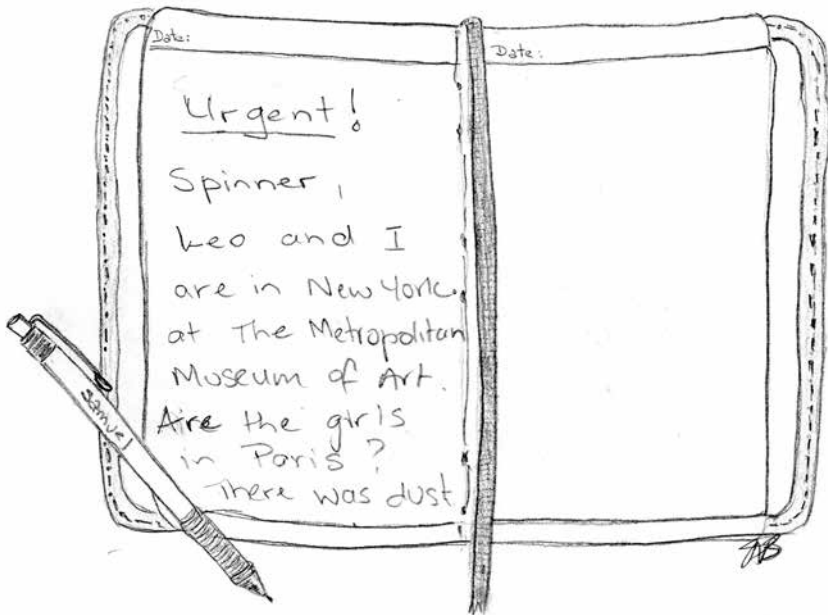 Date:
Date:
Urgent!
Spinner,
Leo and I
are in New York.
at The Metropolitan
Museum of Art.
Are the girls
in Paris?
There was dust
Samuel